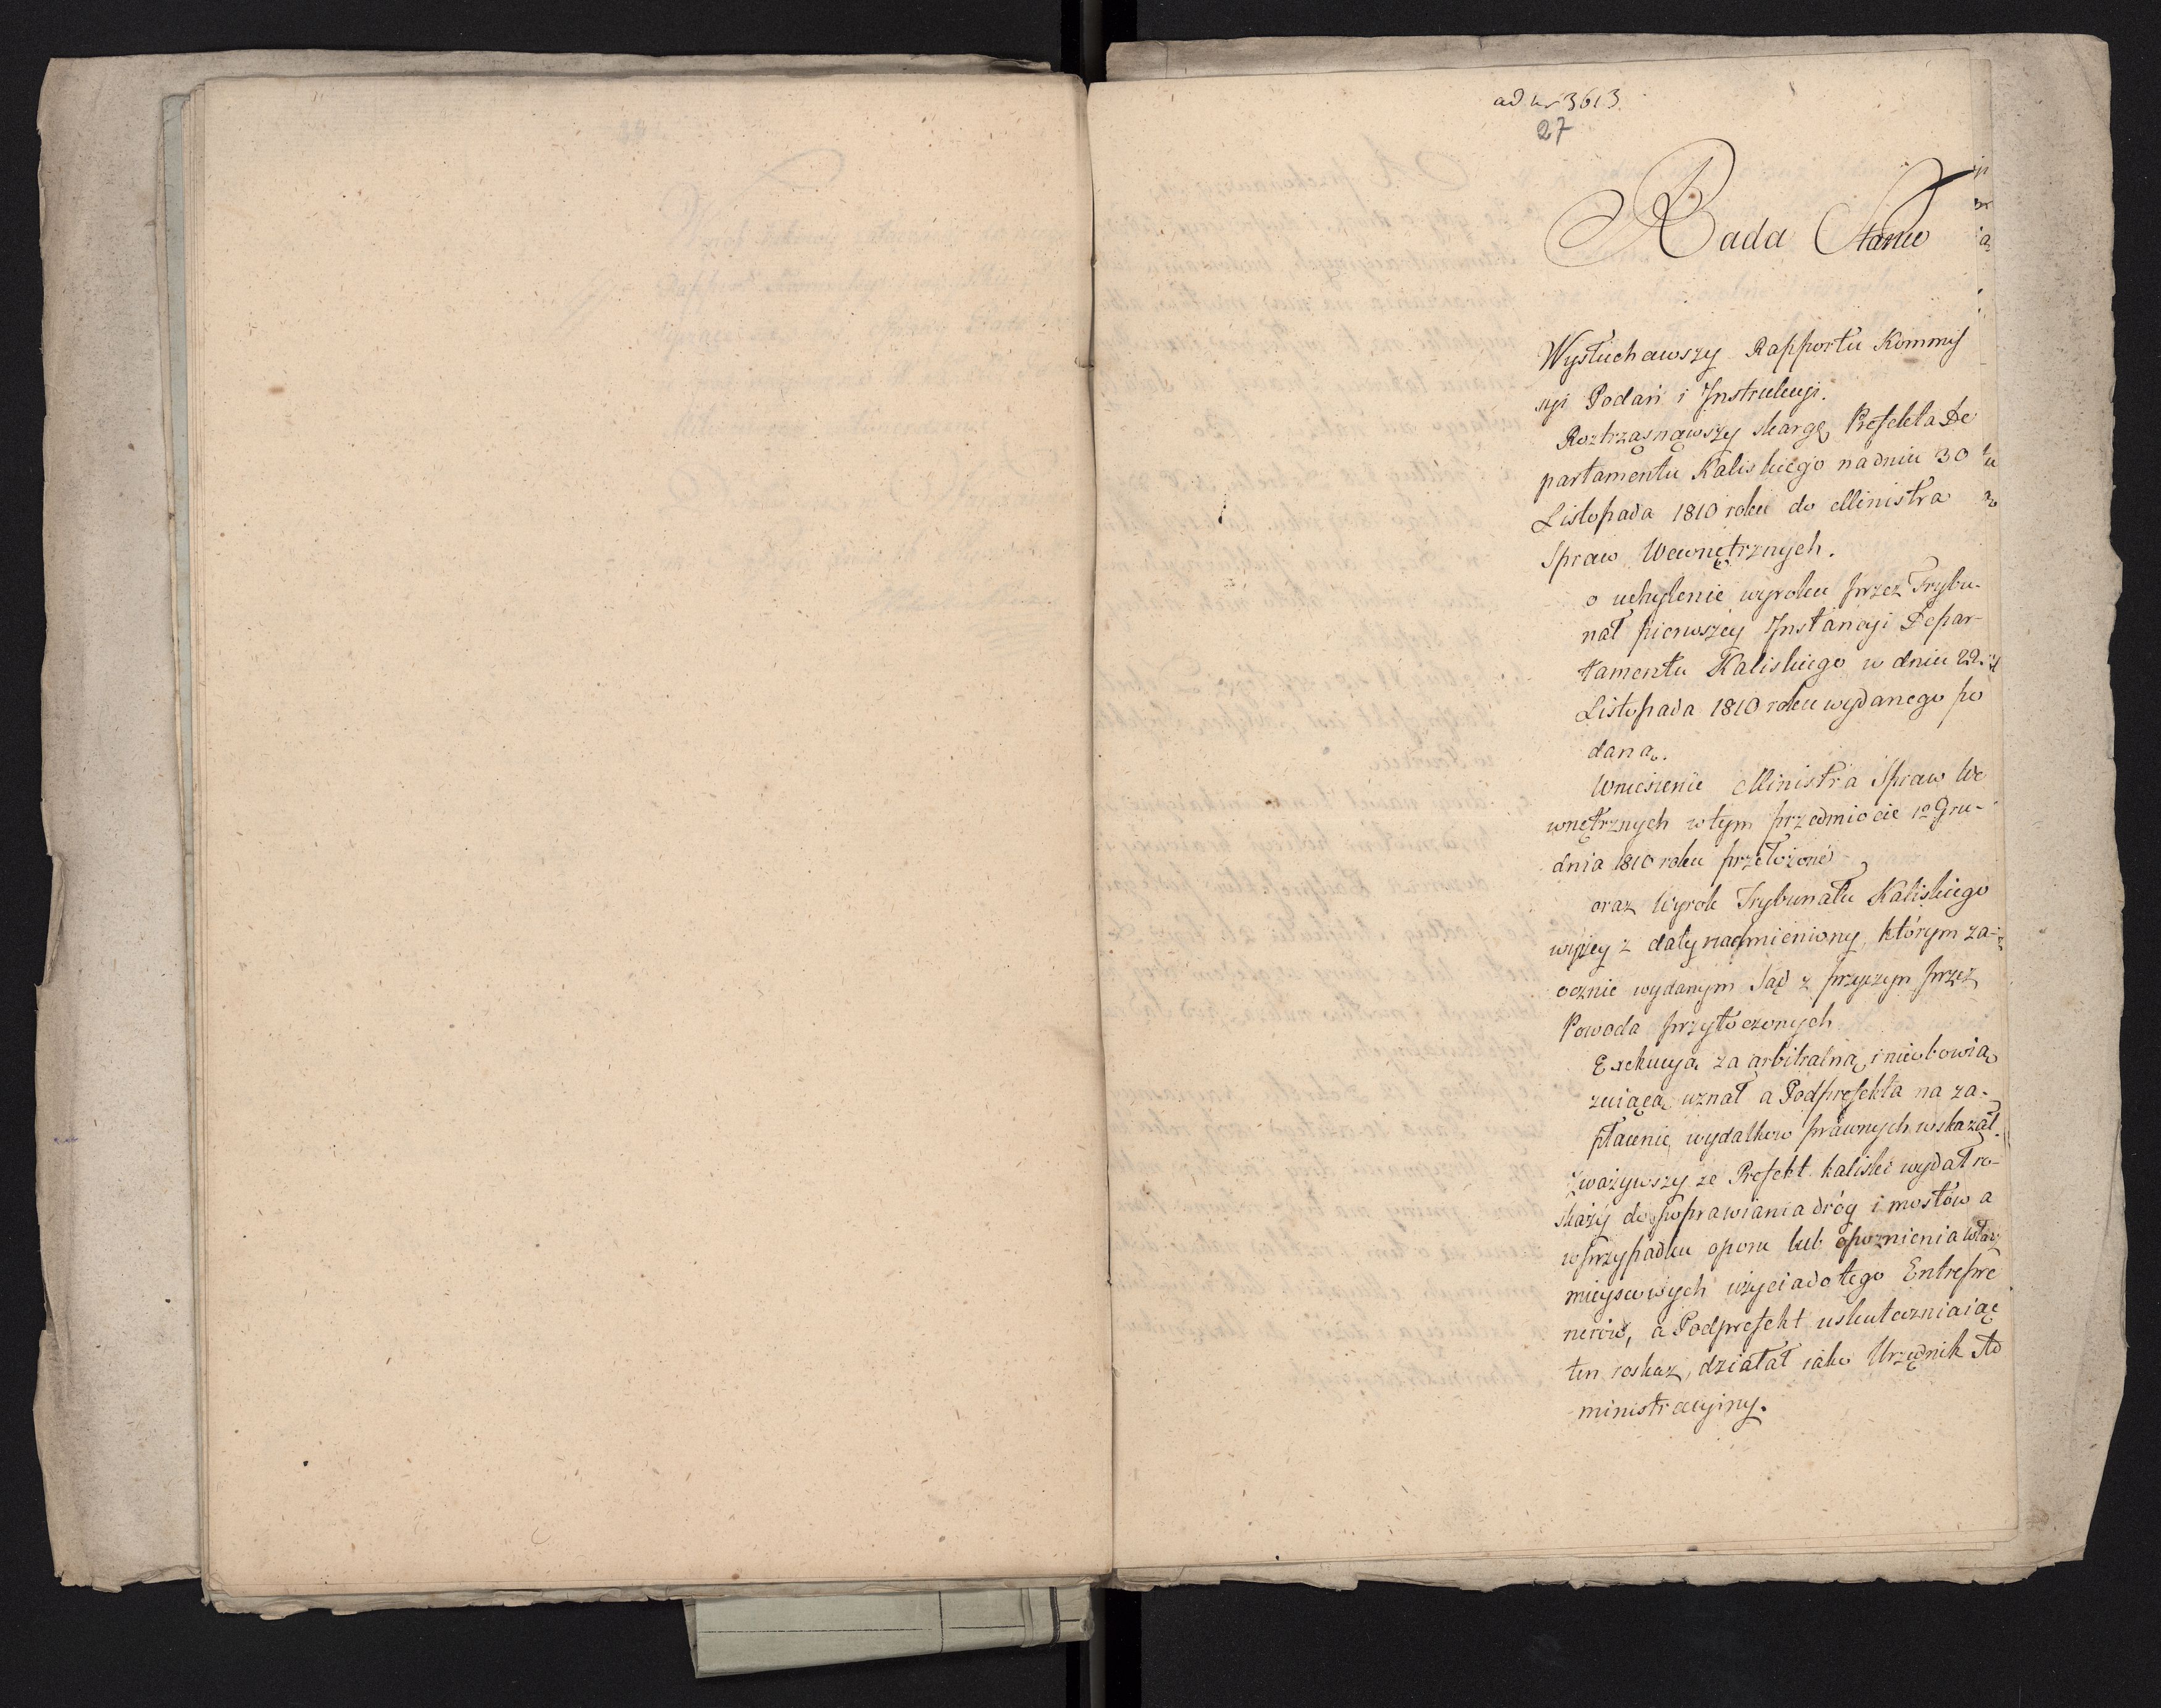 ad Nr 3613.
27
Rada Stanu
Wysłuchawszy Rapportu Kommis
syi Podań i Instrukcyi.
Roztrząsnąwszy skargę Prefekta De
partamentu Kaliskiego na dniu 30
Listopada 1810 roku do Ministra
Spraw Wewnętrznych.
o uchylenie wyroku przez Trybu-
nał pierwszey Instancyi Depar-
tamentu Kaliskiego w dniu 22
Listopada 1810 roku wydanego po
daną.
Wniesienie Ministra Spraw We
wnętrznych w tym przedmiocie 12 Gru-
dnia 1810 roku przełożone
oraz Wyrok Trybunału Kaliskiego
wyżey z daty nadmieniony, którym za-
ocznie wydanym Sąd z przyczyn przez
Powoda przytoczonych
Exekucyą za arbitralną i nieobowią
zuiącą uznał a Podprefekta na za-
płacenie wydatków prawnych wskazał.
Zważywszy ze Prefekt kaliski wydał ro-
skazy do poprawiania dróg i mostów a
w przypadku oporu lub opoznienia Władz
mieyscowych użycia do tego Entrepre
nerów, a Podprefekt uskuteczniaiąc
ten roskaz, działał iako Urzędnik Ad
ministracyiny.